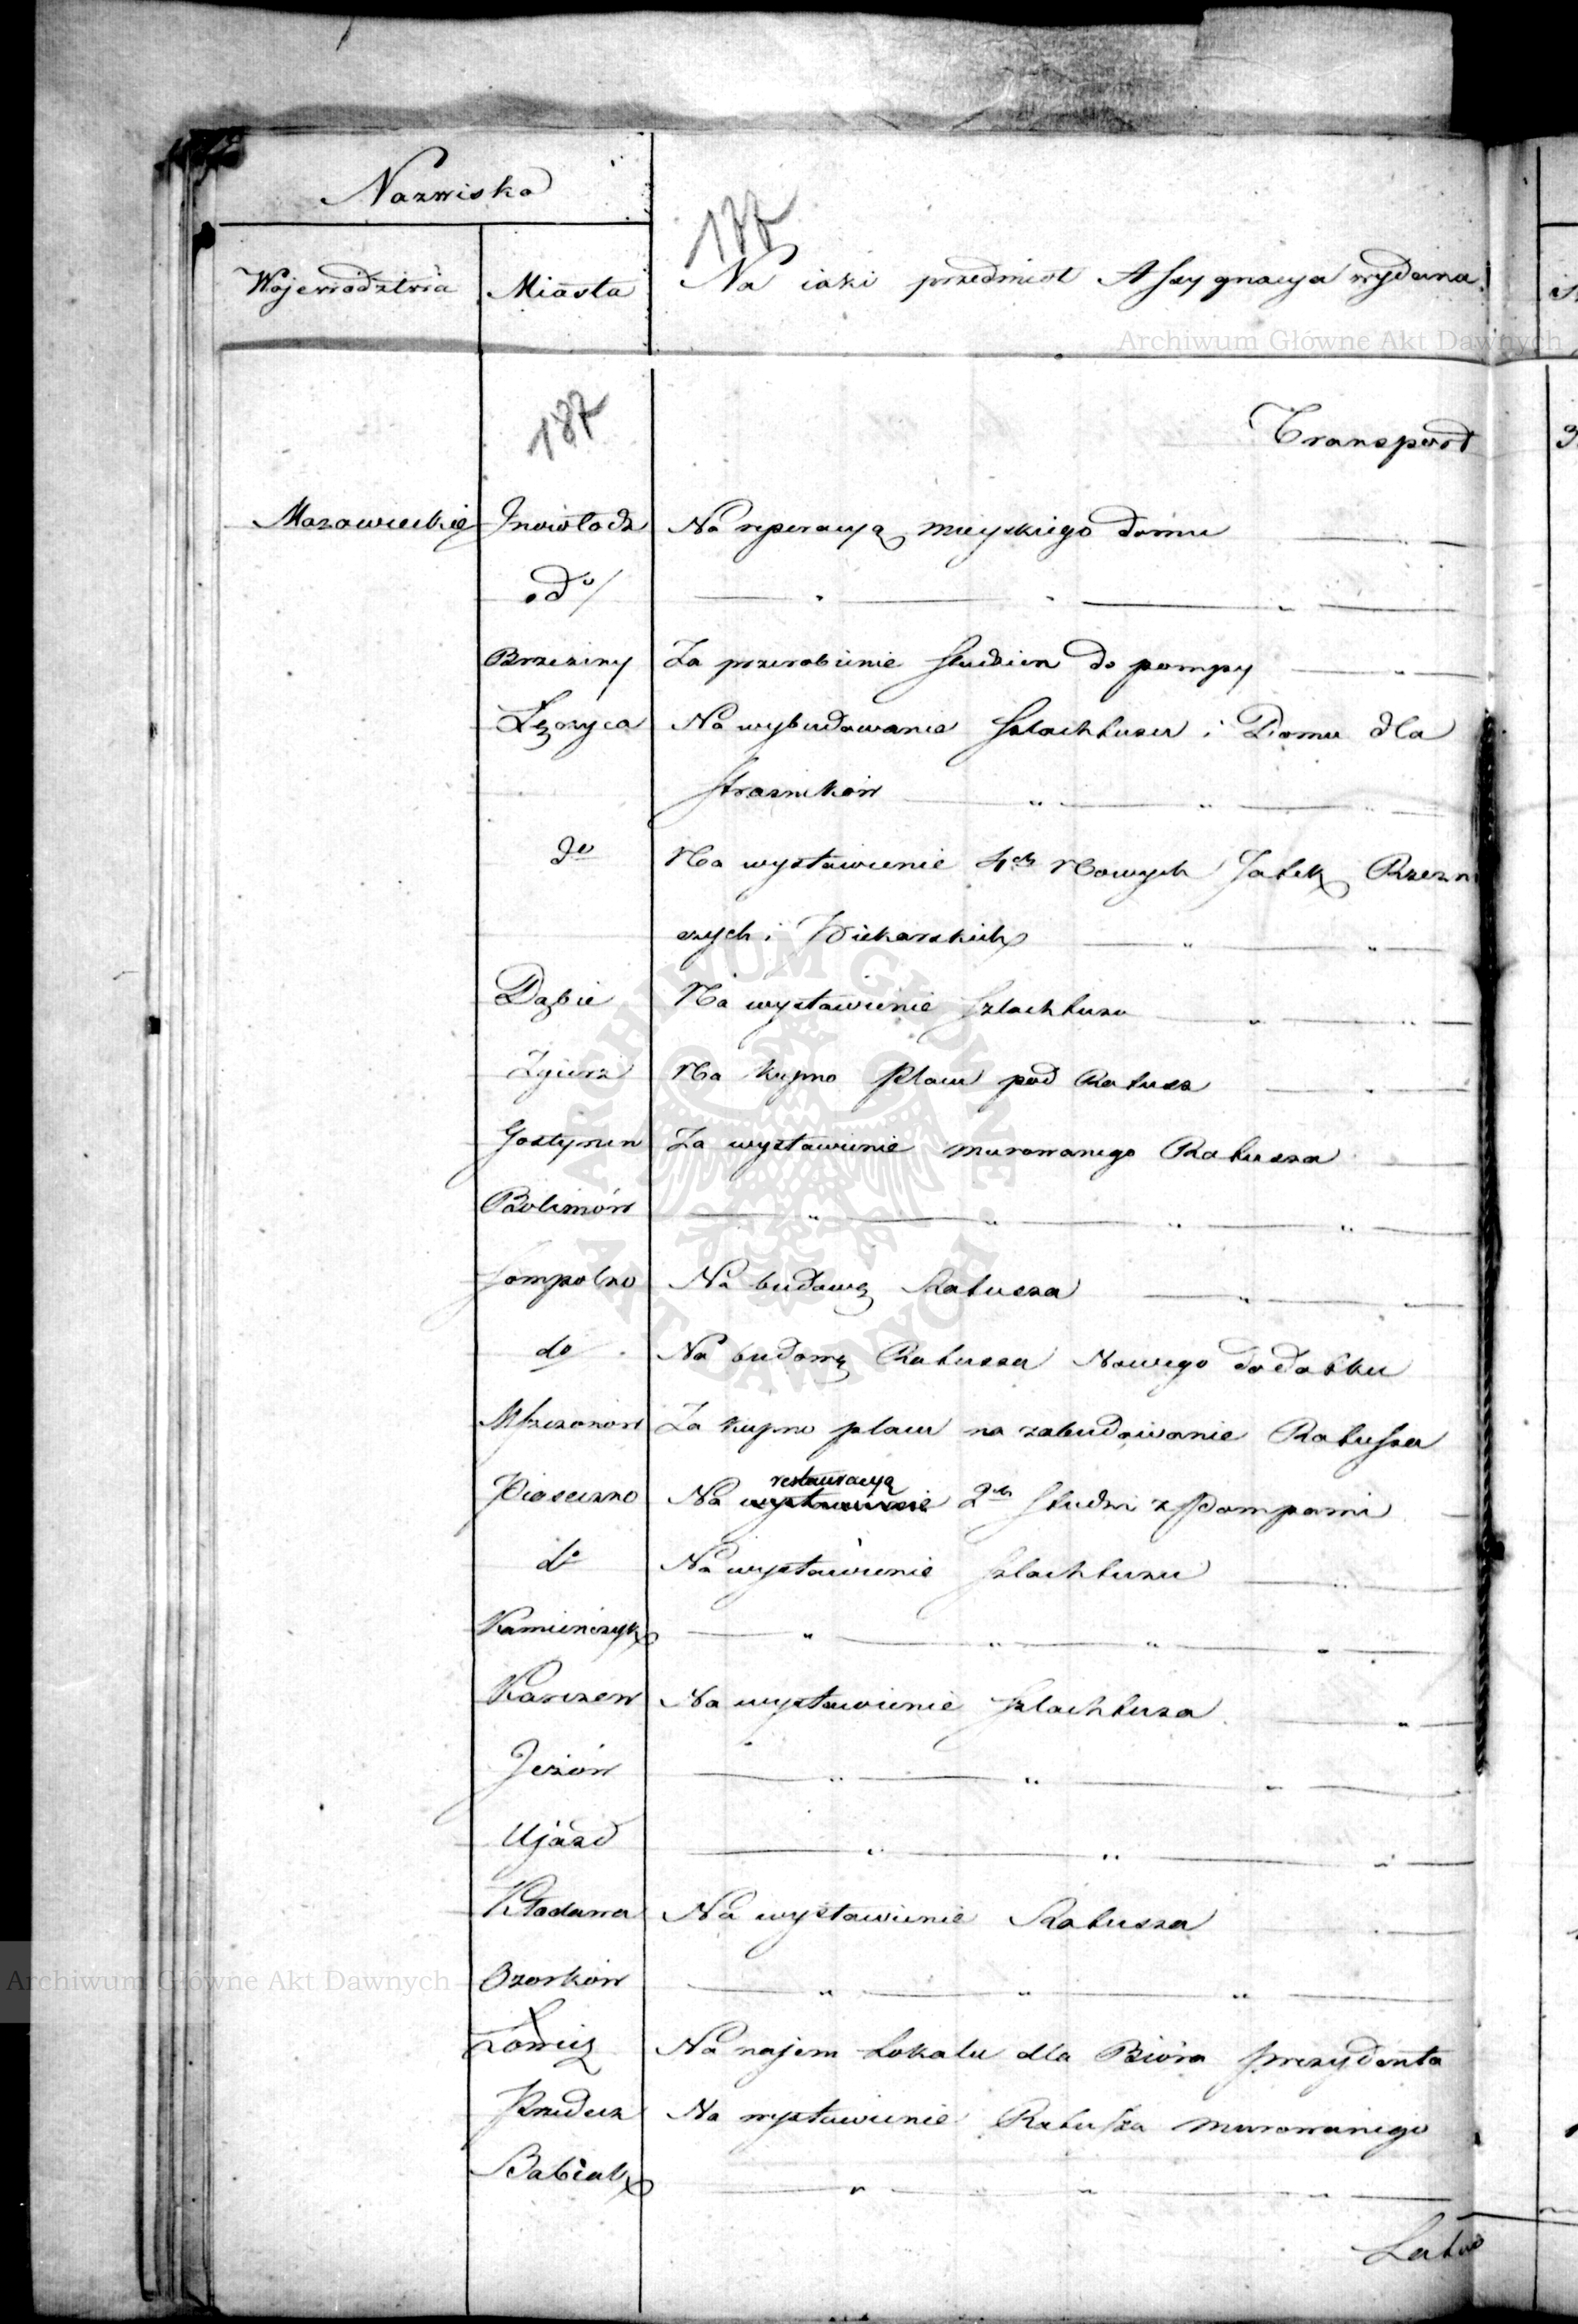 Nazwiska
187
Wojewodztwa Miasta Na iaki przedmiot Assygnacya wydana
Archiwum Główne Akt Dawnych
187
Transport
Mazowieckie Inowłodz Na reperacyą mieyskiego domu
do
Brzeziny Za przerobienie studzien do pompy
Łęczyca Na wybudowanie szlachtuza i Domu dla
strażników
do Na wystawienie 4ch Nowych Jatek Rzezni
czych i Piekarskich
Dąbie Na wystawienie szlachtuza
Zgierz Na kupno Placu pod Ratusz
Gostynin Za wystawienie murowanego Ratusza
Bolimów
Sompolno Na budowę Ratusza
do Na budowę Ratusza Nowego dodatku
Mszczonów Za kupno placu na zabudowanie Ratusza
restauracyą
Piaseczno Na wystawienie 2ch studni z Pompami
do Na wystawienie szlachtuzu
Kamieńczyk
Karczew Na wystawienie szlachtuza
Jeżów
Ujazd
Kłodawa Na wystawienie Ratusza
Archiwum Główne Akt Dawnych
Ozorków
Łowicz Na najem Lokalu dla Bióra prezydenta
Przedecz Na wystawienie Ratusza murowanego
Babiak
Latus
ARCHIWUM GŁÓWNE AKT DAWNYCH